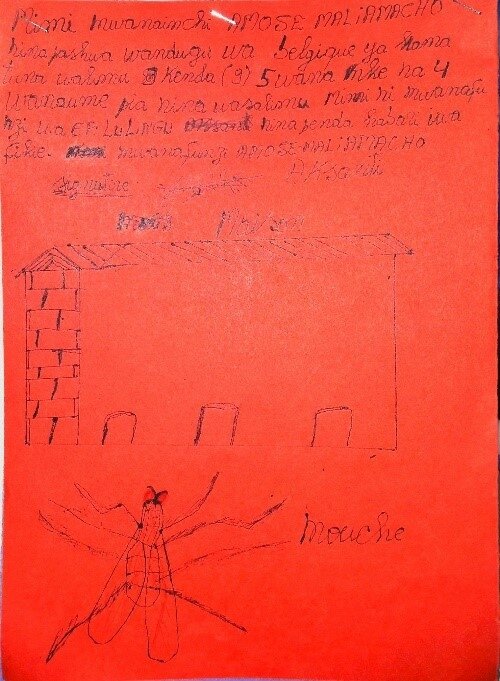 Mimi mwanainchi AMOSE MALIAMACHO
ninapashwa wandugu wa Belgique ya kama
tuna watimu Kenda (9) 5 wana mke na 4
wanaume pia nina wasalimu Mimi ni mwanafu
nzi wa EP. LULINGU ninapenda habari iwa
fikie. mwanafunzi AMOSE MALIAMACHO
Signature
AKsanti
Maison
Mouche